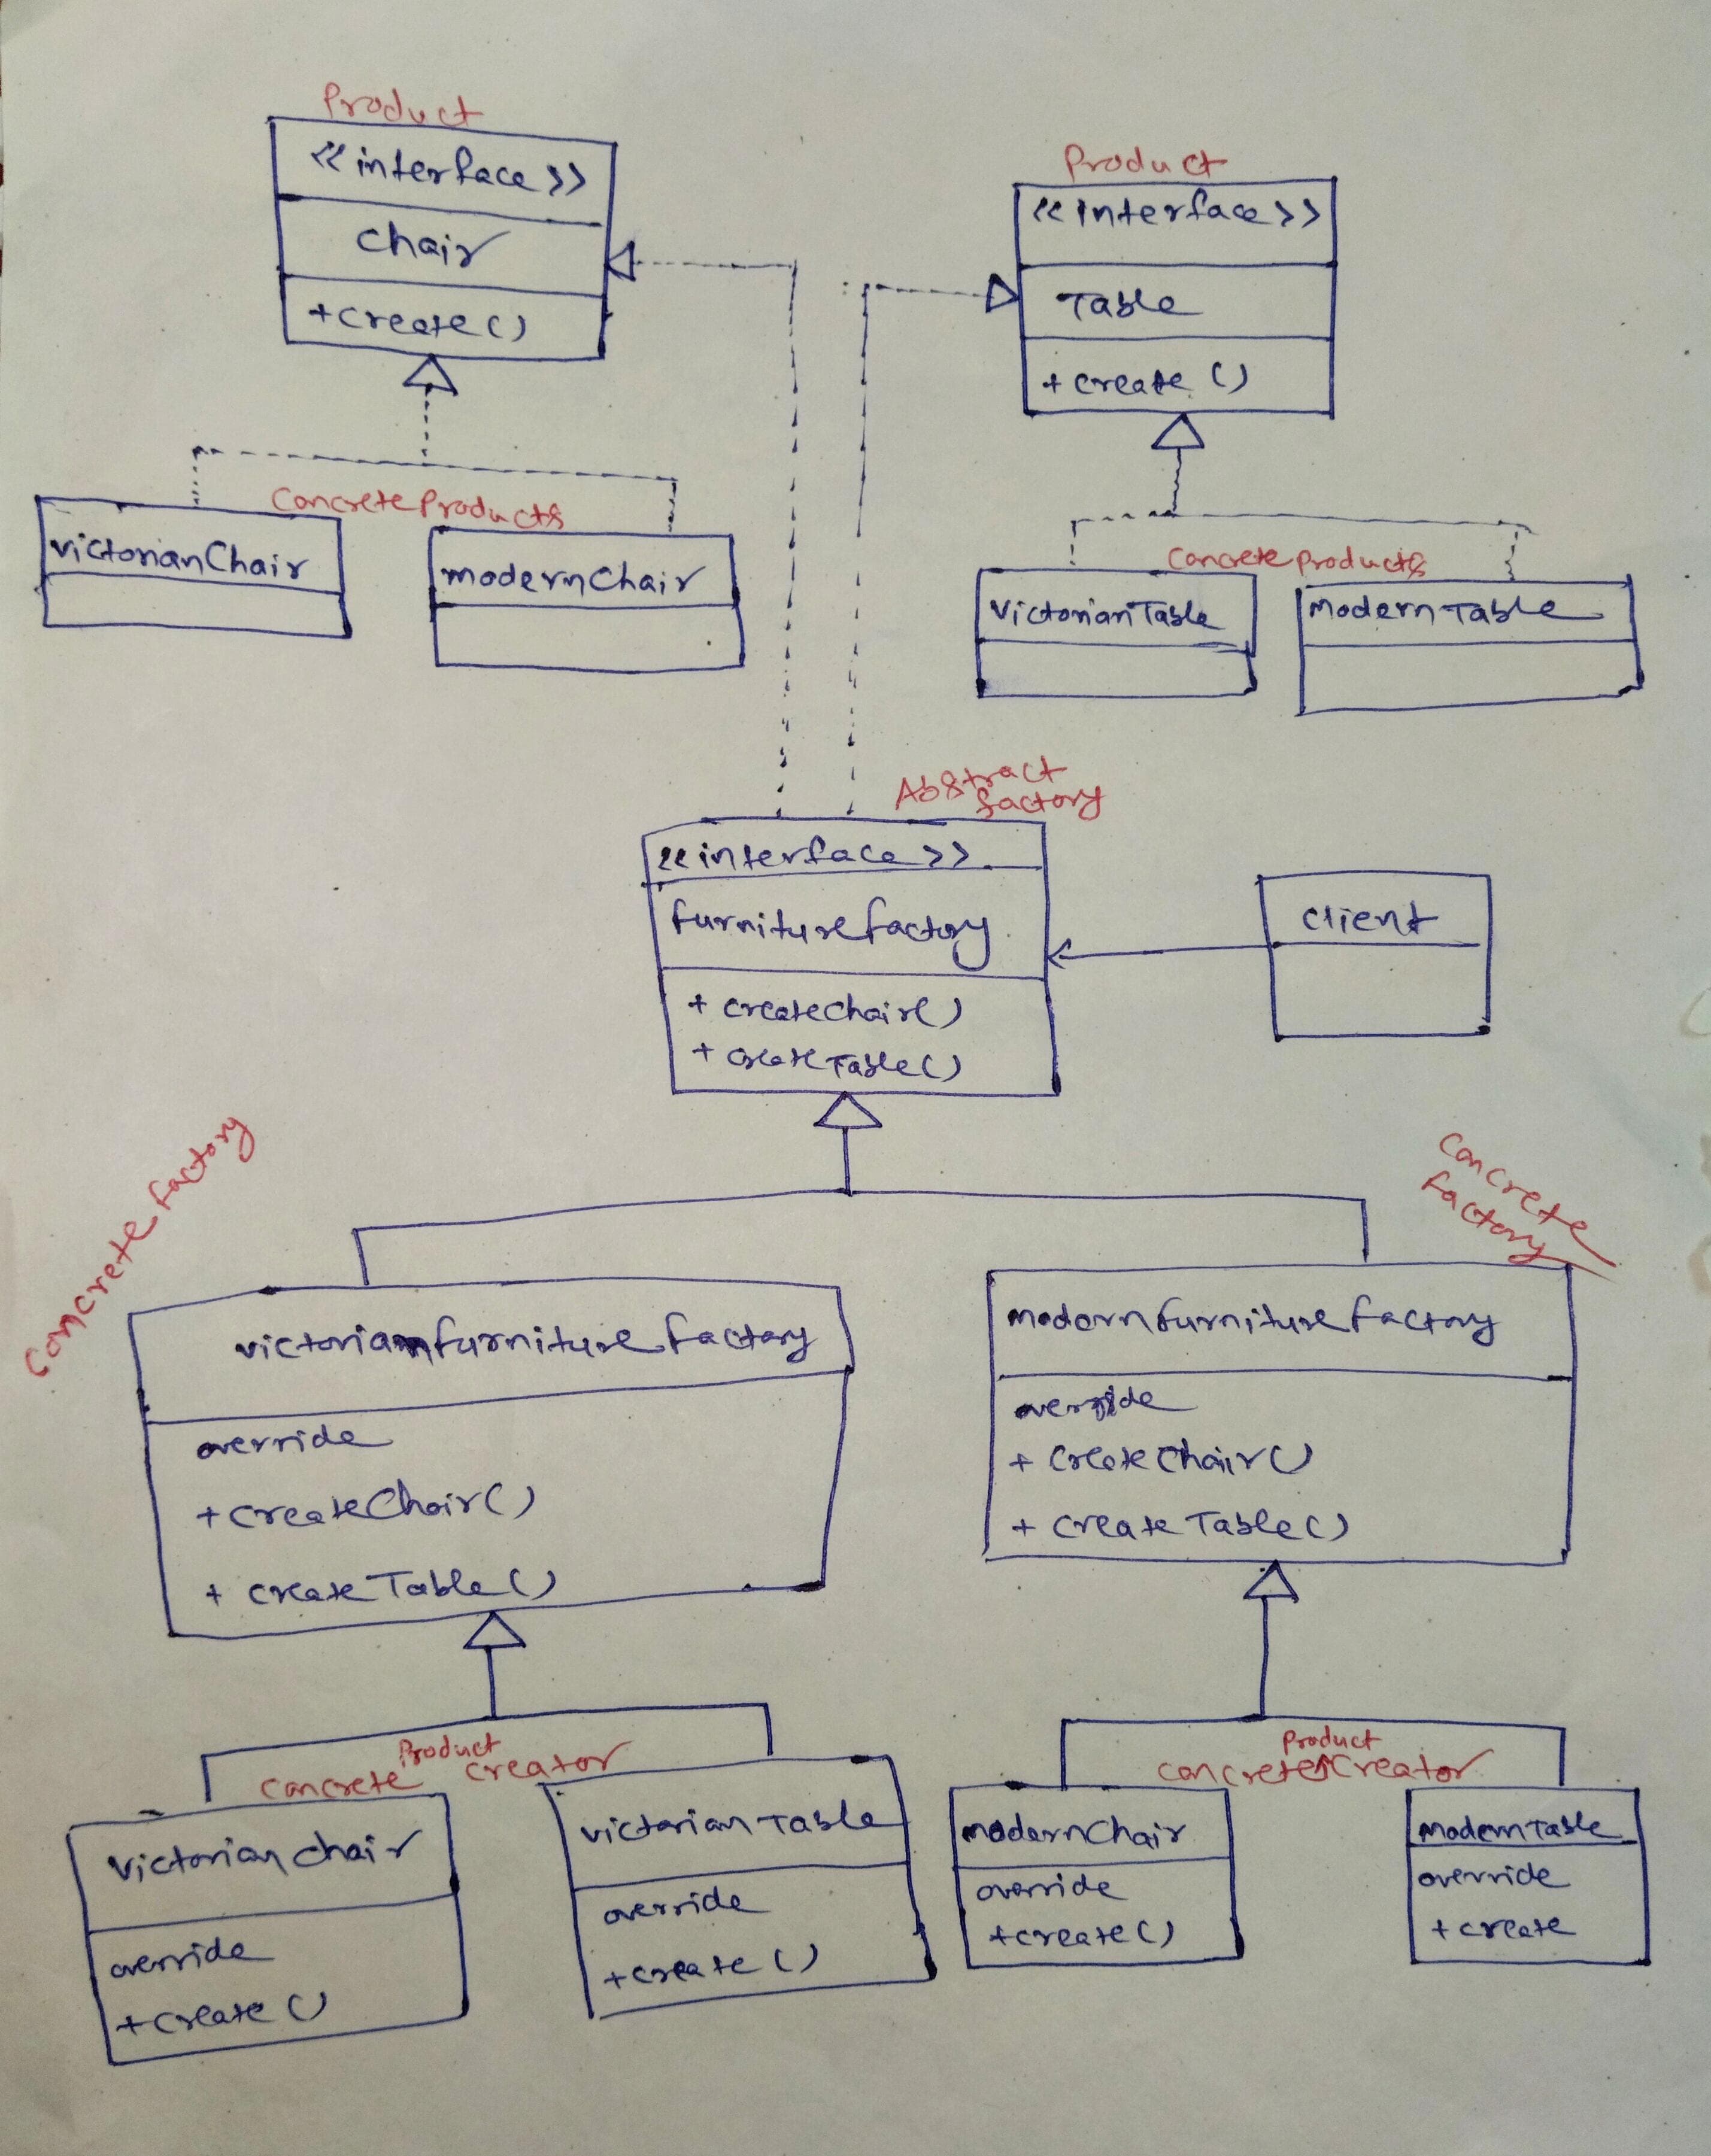 Product
<<interface>>
Chair
+create()
Product
<<interface>>
Table
+create()
Concrete Products
VictorianChair
modernChair
Concrete products
VictorianTable
ModernTable
Abstract
factory
<<interface>>
furniturefactory
+ createchair()
+ createTable()
client
Concrete factory
Concrete
factory
victorianfurniturefactory
override
+createChair()
+ createTable()
modernfurniturefactory
override
+ createChair()
+ createTable()
Product
concrete creator
victorianchair
override
+create()
victorianTable
override
+create()
Product
concrete creator
modernChair
override
+create()
modernTable
override
+create